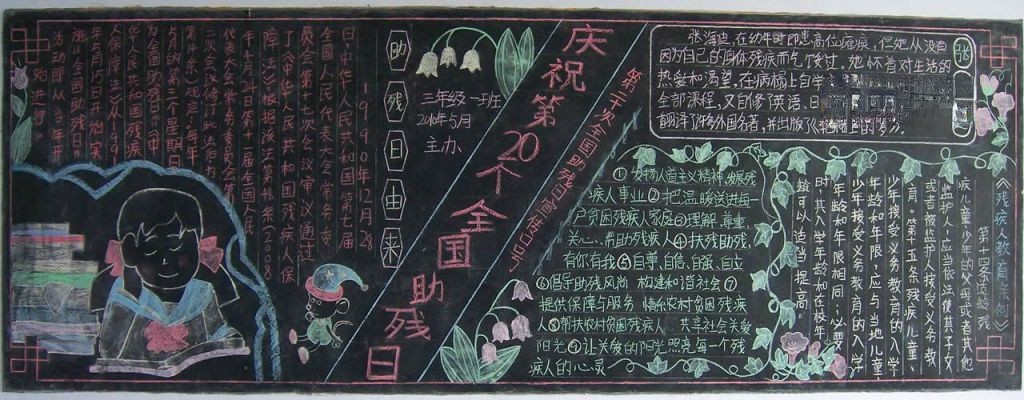 庆祝第20个全国助残日
第二十次全国助残日宣传口号
助残日由来
三年级一班
2010年5月
主办
1990年12月28
日,中华人民共和国第七届
全国人民代表大会常务委
员会第十七次会议审议通过
了《中华人民共和国残疾人保
障法》。根据该法第48条(2008
年4月24日第十一届全国人民
代表大会常务委员会第
二次会议修订此法
每年
5月的第三个星期日
为全国助残日。《中
华人民共和国残疾
人保障法》从1991
年5月15日开始实
施,"全国助残日"
活动即从
始进行。
张海迪,在幼年时即患高位瘫痪,但她从没有
因为自己的身体残疾而气馁过,她怀着对生活的
热爱和渴望,在病榻上自学
全部课程,又自修了英语、日
翻译了许多外国名著,并出版了
①发扬人道主义精神,发展残
疾人事业②把温暖送进每一
户贫困残疾人家庭③理解、尊重、
关心、帮助残疾人④扶残助残,
有你有我⑤自尊、自信、自强、自立
⑥倡导助残风尚 构建和谐社会⑦
提供保障与服务 情系农村贫困残疾
人⑧帮扶农村贫困残疾人 共享社会关爱
阳光⑨让关爱的阳光照亮每一个残
疾人的心灵
《残疾人教育条例》
第十四条适龄残
疾儿童、少年的父母或者其他
监护人,应当依法使其子女
或者被监护人接受义务教
育。第十五条残疾儿童、
少年接受义务教育的入学
年龄和年限,应当与当地儿童、
少年接受义务教育的入学
年龄和年限相同;必要
时,其入学年龄和在校年
龄可以适当提高。